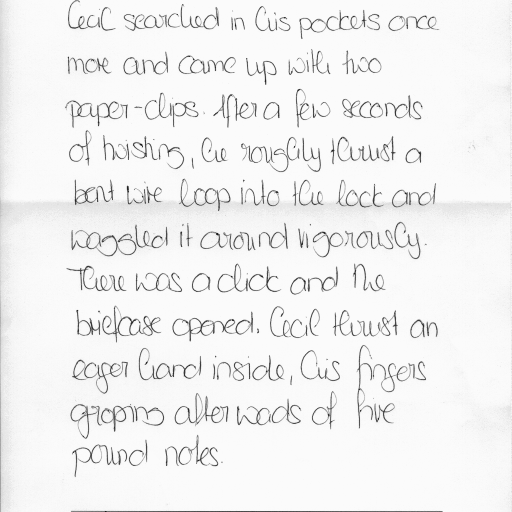 Cecil searched in his pockets once
more and came up with two
paper-clips. After a few seconds
of twisting, he roughly thrust a
bent wire loop into the lock and
waggled it around vigorously.
There was a click and the
briefcase opened. Cecil thrust an
eager hand inside, his fingers
groping after wads of five
pound notes.